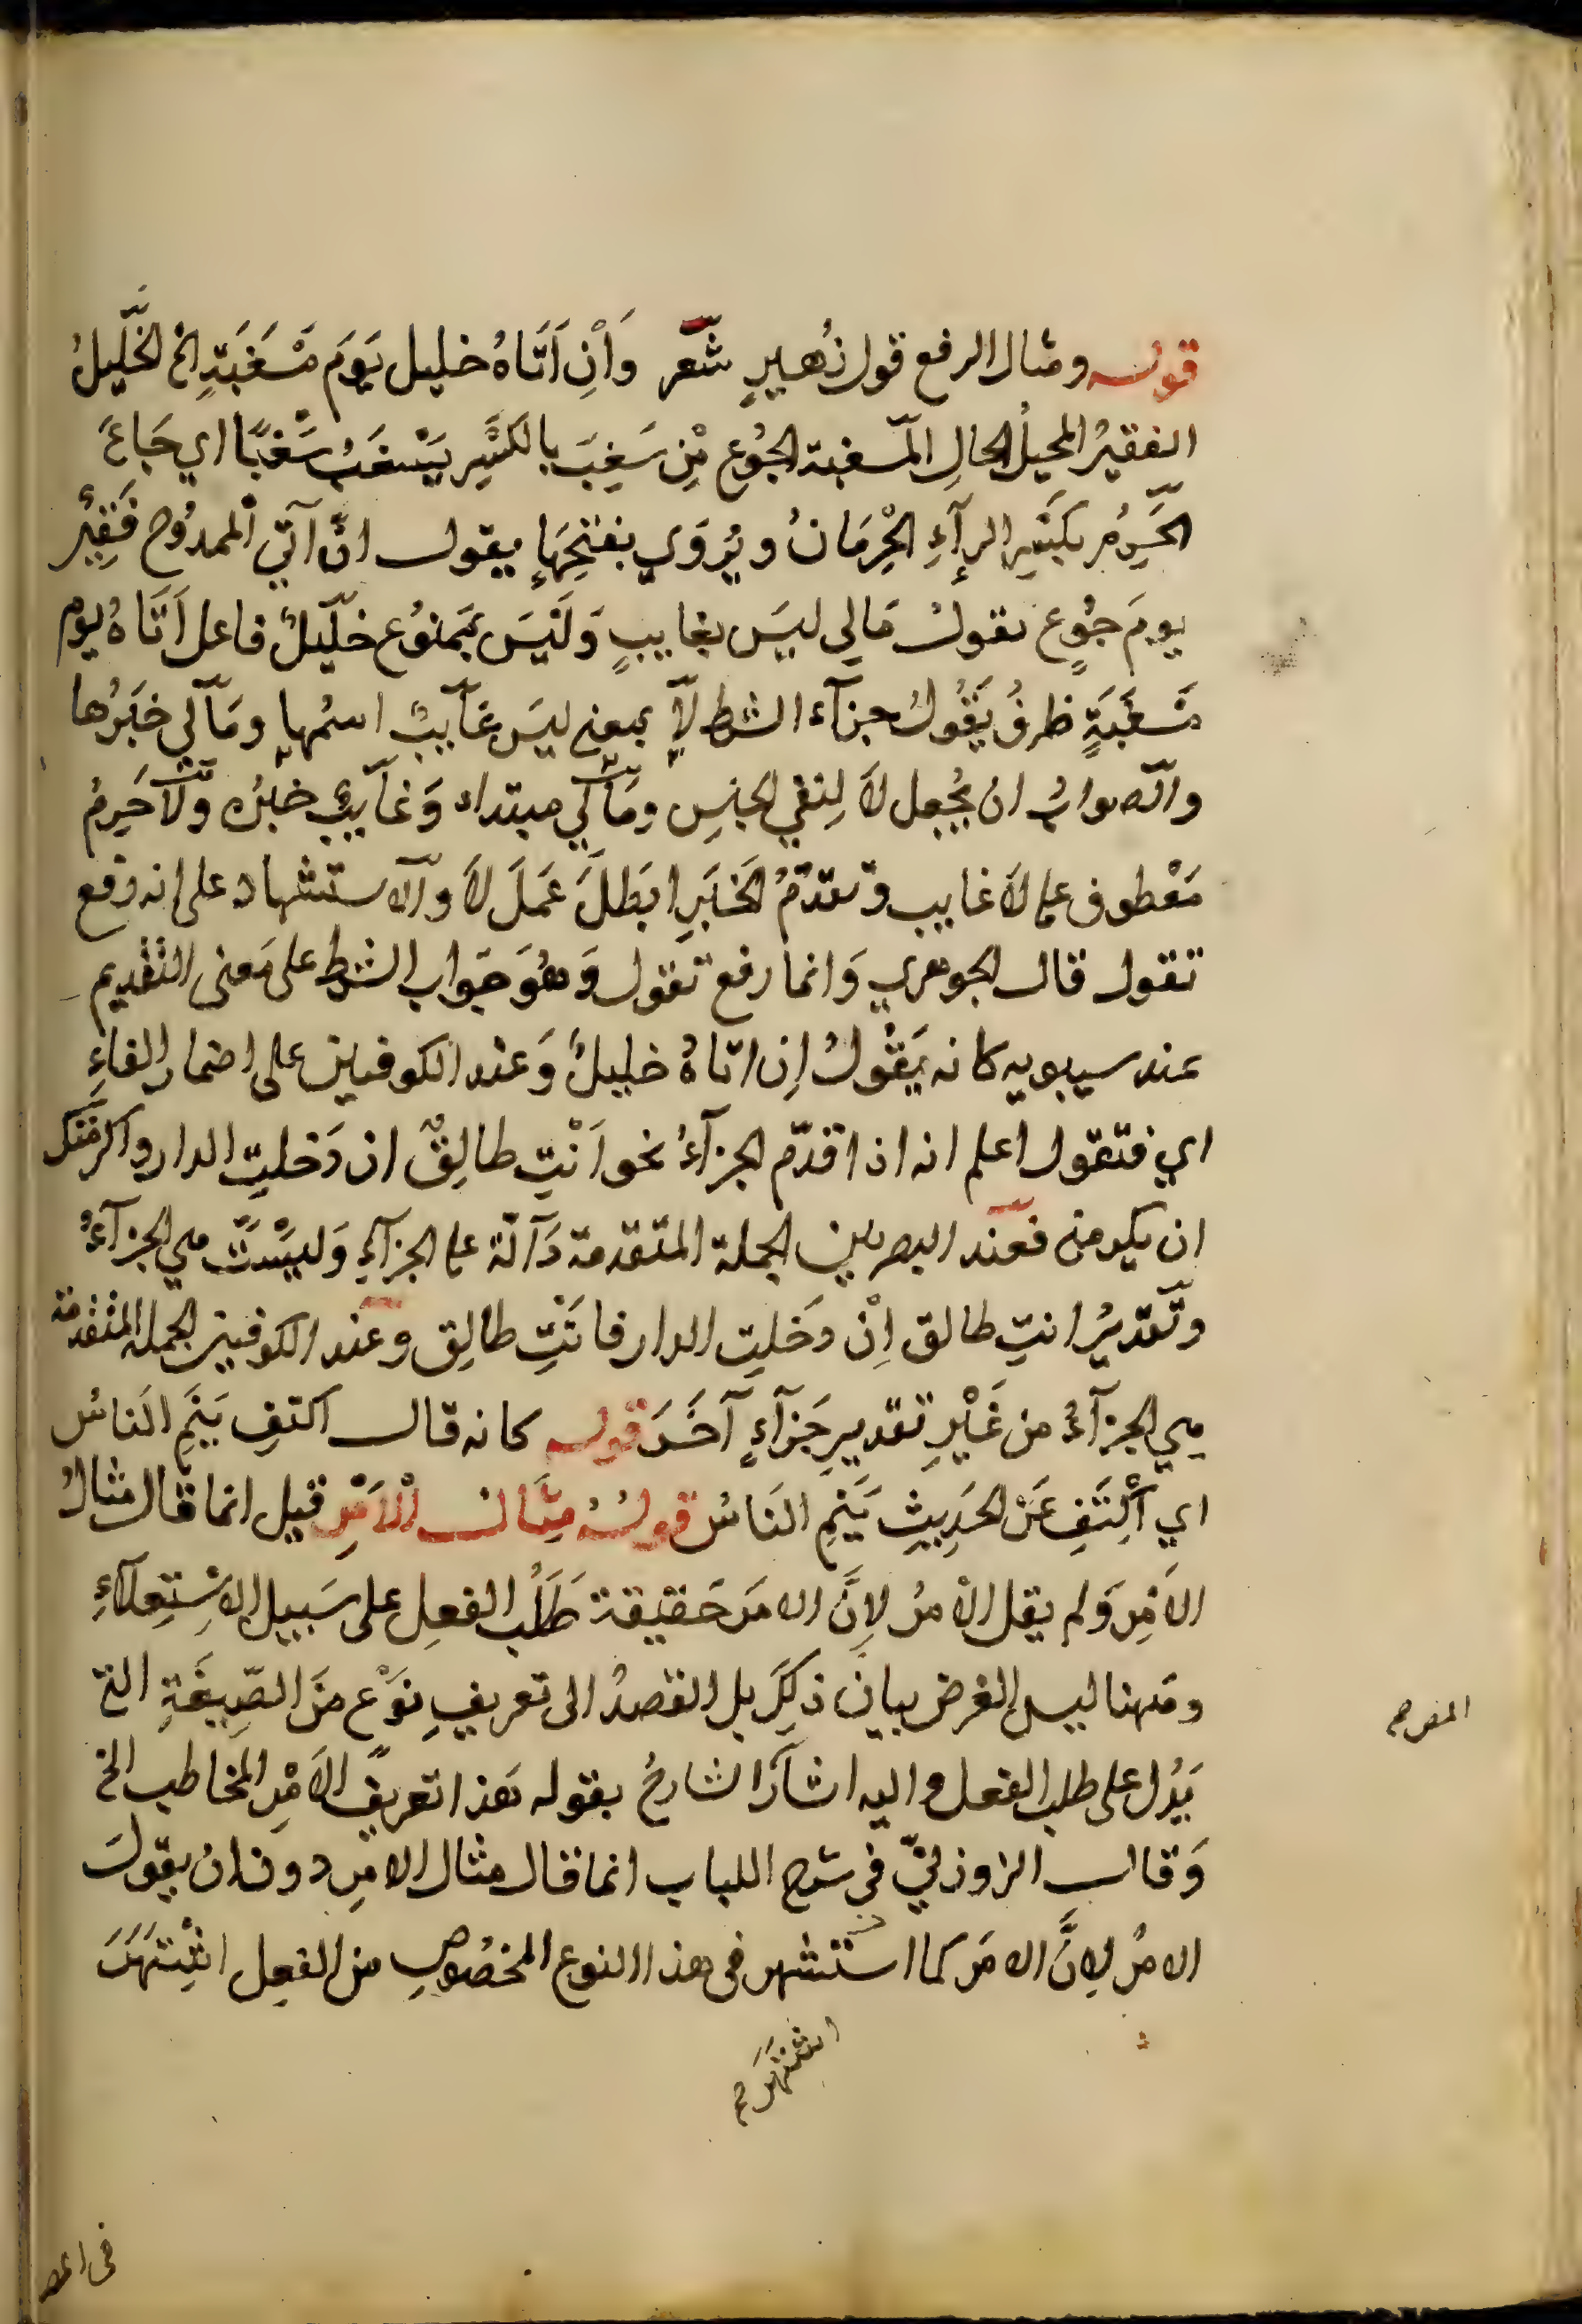 قوله ومثال الرفع قول زُهيرٍ شعر وَاْنِ اَتَاهُ خليل يَوَم مَسْغَبَتٍ الخ الخَليلُ
الفقيرُ المحيلُ الحالِ المسغبة الجُوع مْنِ سَغِبَ بالكسْرِ يَسْغَبُ سَغَبًا اي جَاعَ
الحَرِمُ بكَسْرِ الرآءِ الحْرِمَانُ ويُرْوَي بفتحِهَا يقول انْ آتي الممدُوح فَقِيْر
يومَ جُوْعٍ يقولُ مَالي ليسَ بغايبٍ وَلَيْسَ بمَمنوُع خليلٌ فاعل اَتَاهُ يوم
مَسْغَبَةٍ ظرفُ يَقُولُ جزآء الشرط لا بمعني ليسَ غَايبٌ اسمُها ومَالي خبَرُها
والصوابُ ان يُجعل لاَ لِنفي الجنسِ ومَالي مبتداء وَغايبٌ خبرُه ولاحَرِمُ
مَعْطوف على لاَغايب وتقدّمُ الخَبَرِ ابَطلَ عَمَلَ لاَ والاستشهاد على انه رفع
تقول قال الجوهري وَانما رفع تقول وَهُوَ جَوَاب الشرط على مَعنى التقديم
عند سيبويه كانه يَقْولُ اِن اتاهُ خليلٌ وَعند الكوفيين على اضمار الفاءِ
اي فتقول اعلم انه اذا قدّم الجزآءُ نحو اَنْتِ طالِقٌ ان دَخلتِ الدار واكرمتك
ان تكرمني فعند البصريين الجملة المتقدمة دَآلّة على الجزآءِ وَليْسَتْ هي الجزآءُ
وتقديرُ انتِ طالق اِنْ دَخَلتِ الدار فاَنْتِ طالِق وعند الكوفيين الجملة المتقدمة
هي الجزآءُ من غَيْرِ تقديرِ جَزآءٍ آخَرَ قوله كانه قال اكتفِ يَنَمِ الَناسُ
اي اَكْتَفِ عَن الحَدِيثِ يَنَمِ النَاسُ قولُهُ مِثَال الْاَمْرِ قيل انما قال مثالُ
الاَمْرِ وَلم يقل الاْمرُ لاِنَّ الامرَ حَقيقة طَلَبُ الفعِل على سَبيل الاِسْتِعلآءِ
وهَهنا ليس الغرض بيان ذلِكَ بل القصدُ الى تعريفِ نَوْع منَ الصّيغَةِ التي
يَدُل على طلب الفعل واليه اشاَر الشارحُ بقوله هَذا تعريفُ الاَمْرِ المخاطب الخ
وَقال الزوزنيّ في شرح اللباب انما قال مثال الامْرِ دون ان يقولَ
الامْرُ لاِنَّ الامَر كما استشهر في هذا النوع المخصُوصِ من الفعِل اشتَهَرَ
اشتَهَر م